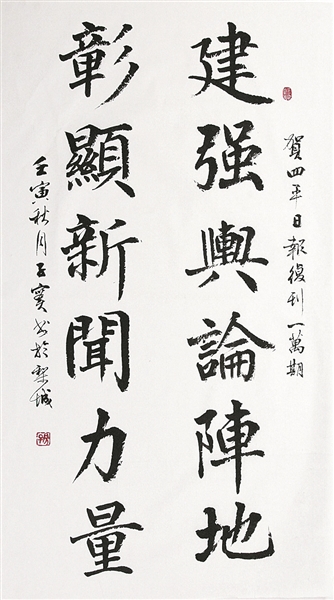 賀四平日報復刊一萬期
建强輿論陣地
彰顯新聞力量
壬寅秋月王書於梨城